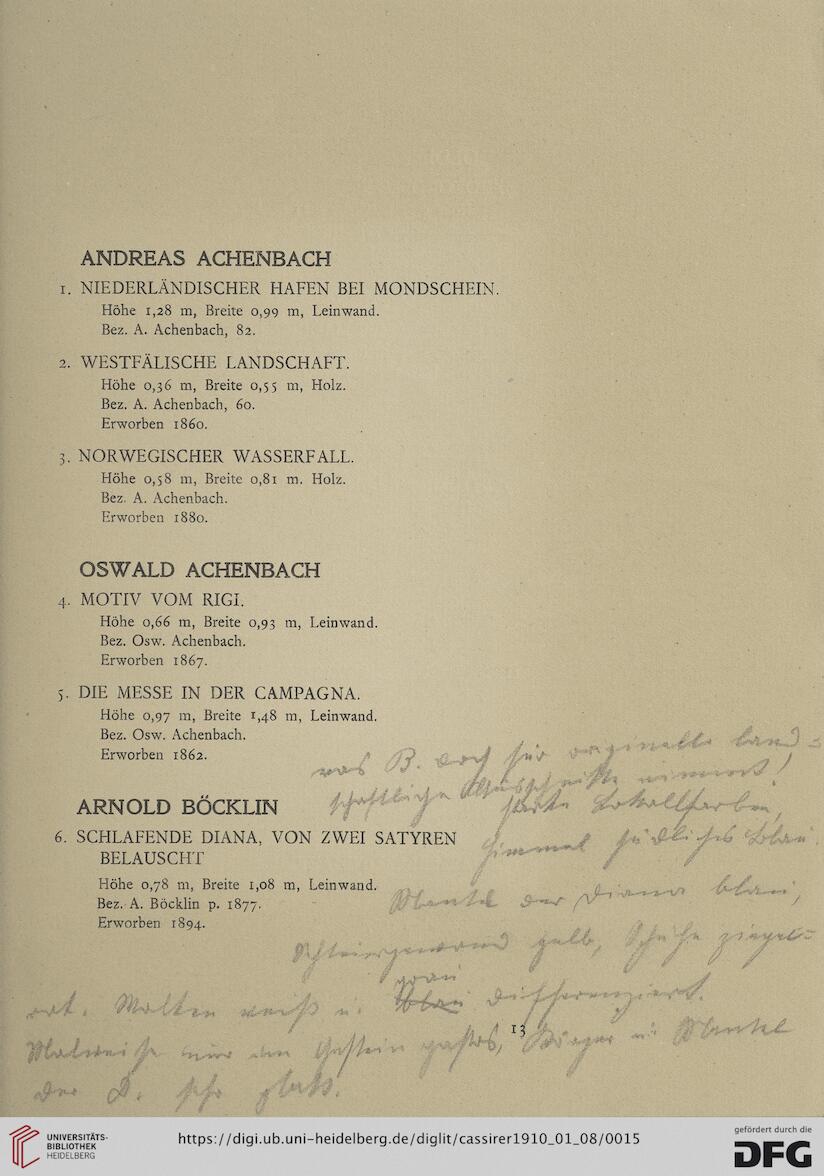 ANDREAS ACHENBACH
1. NIEDERLÄNDISCHER HAFEN BEI MONDSCHEIN.
Höhe 1,28 m, Breite 0,99 m, Leinwand.
Bez. A. Achenbach, 82.
2. WESTFÄLISCHE LANDSCHAFT.
Höhe 0,36 m, Breite 0,55 m, Holz.
Bez. A. Achenbach, 60.
Erworben 1860.
3. NORWEGISCHER WASSERFALL.
Höhe 0,58 m, Breite 0,81 m. Holz.
Bez. A. Achenbach.
Erworben 1880.
OSWALD ACHENBACH
4. MOTIV VOM RIGI.
Höhe 0,66 m, Breite 0,93 m, Leinwand.
Bez. Osw. Achenbach.
Erworben 1867.
5. DIE MESSE IN DER CAMPAGNA.
Höhe 0,97 m, Breite 1,48 m, Leinwand.
Bez. Osw. Achenbach.
Erworben 1862.
was B. doch für originelle land-
schaftliche Ausschnitte nimmt!
ARNOLD BÖCKLIN
starke Lokalfarben,
6. SCHLAFENDE DIANA, VON ZWEI SATYREN
BELAUSCHT
Himmel südliches Blau.
Höhe 0,78 m, Breite 1,08 m, Leinwand.
Bez. A. Böcklin p. 1877.
Erworben 1894.
Mantel der Diana blau,
Schleiergewand gelb, Schuhe ziegel-
rot. Wolken weiß u. grau differenziert.
Malweise nur im Gestein pastos, Körper u. Mantel
der D. sehr glatt.
13
UNIVERSITÄTS-
BIBLIOTHEK
HEIDELBERG
https://digi.ub.uni-heidelberg.de/diglit/cassirer1910_01_08/0015
gefördert durch die
DFG